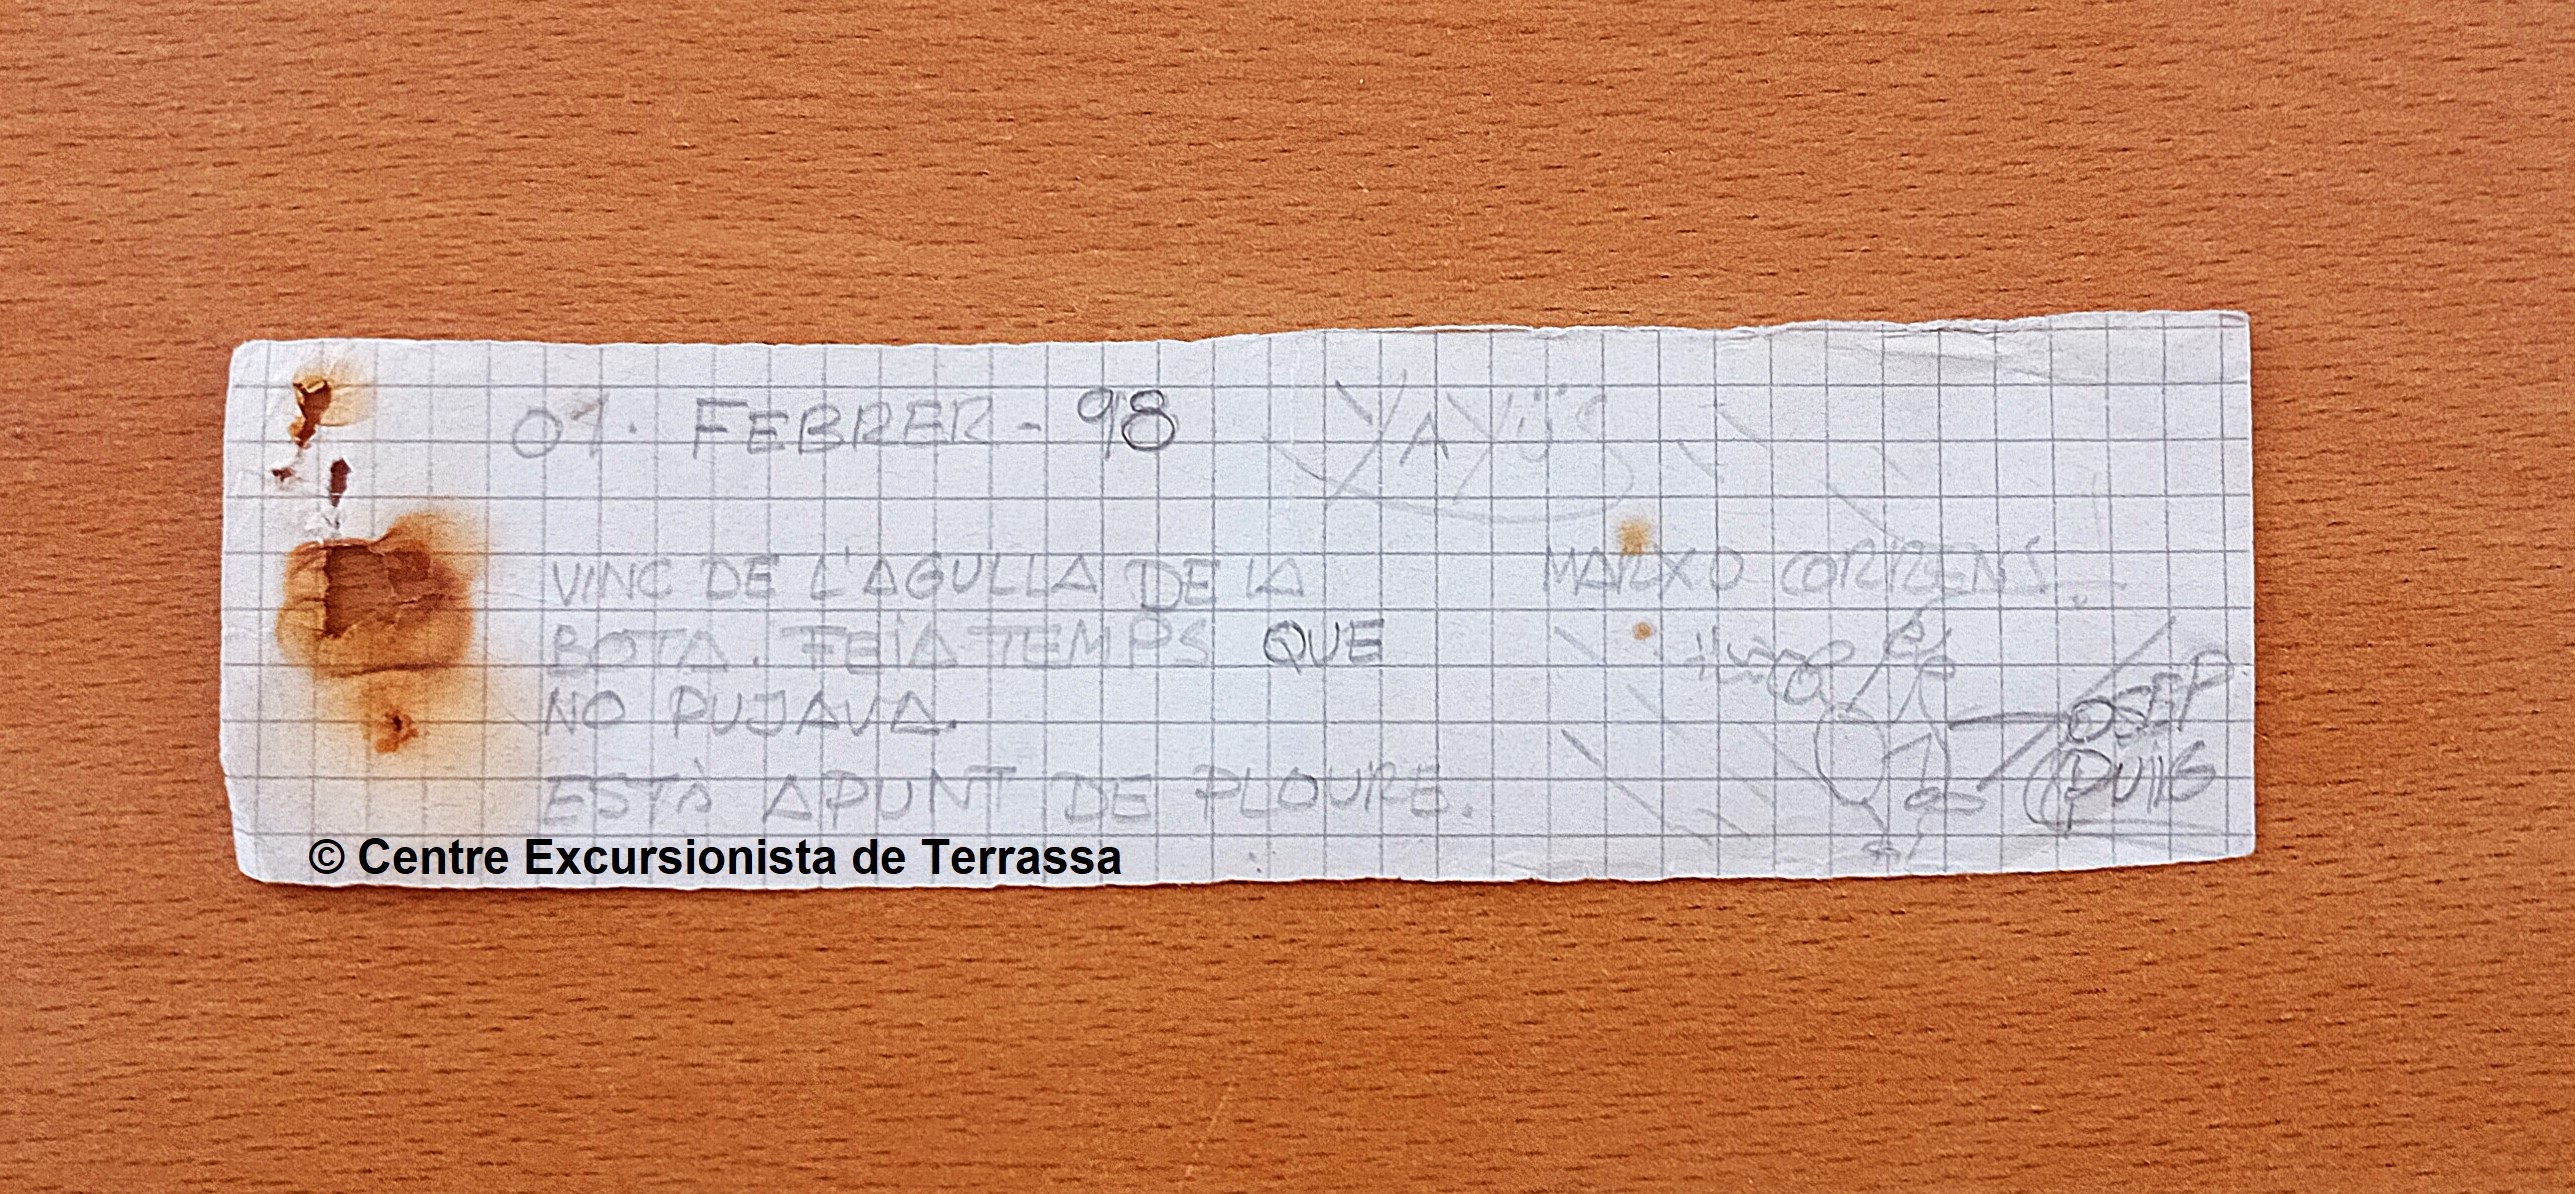 01. FEBRER - 98
YAYÜS
VINC DE L'AGULLA DE LA
BOTA. FEIA TEMPS QUE
NO PUJAVA.
ESTÀ APUNT DE PLOURE.
MARXO CORRENS.
JOSEP
PUIG
© Centre Excursionista de Terrassa